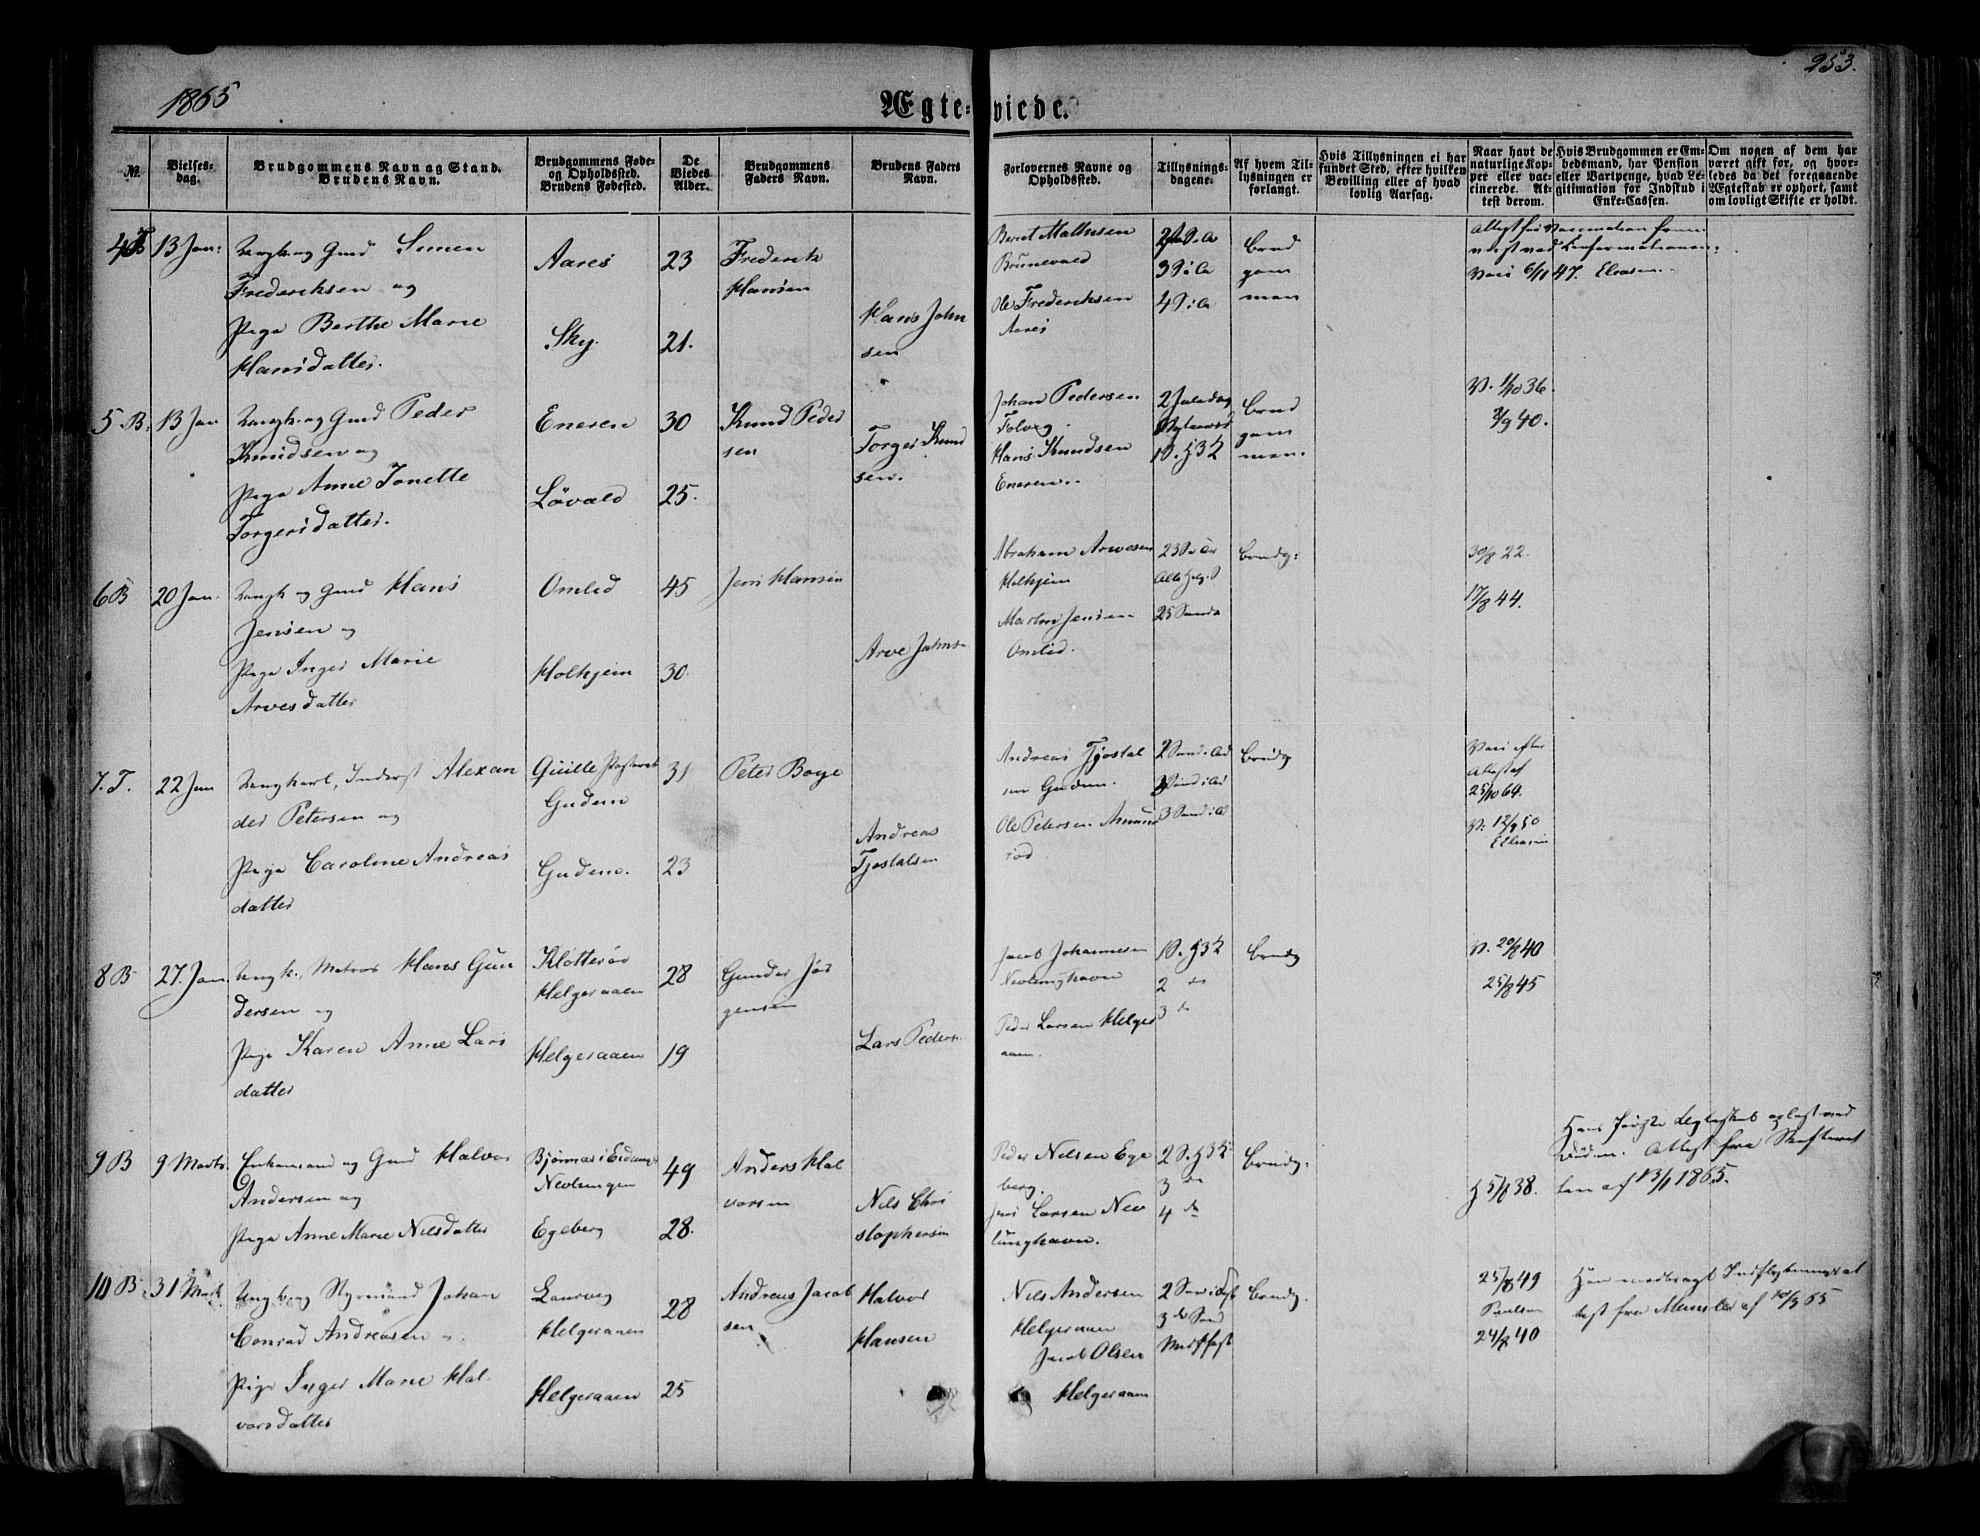 1865
253.
Ægte-viede.
№
Vielses-
dag.
Brudgommens Navn og Stand.
Brudens Navn.
Brudgommens Føde-
og Opholdssted.
Brudens Fødested.
De
Viedes
Alder.
Brudgommens
Faders Navn.
Brudens Faders
Navn.
Forlovernes Navne og
Opholdssted.
Tillysnings-
dagene.
Af hvem Til-
lysningen er
forlangt.
Hvis Tillysningen ei har
fundet Sted, efter hvilken
Bevilling eller af hvad
lovlig Aarsag.
Naar havt de
naturlige Kop-
per eller vac-
cinerede. At-
test derom.
Hvis Brudgommen er Em-
bedsmand, har Pension
eller Vartpenge, hvad Le-
gitimation for Indskud i
Enke-Cassen.
Om nogen af dem har
været gift før, og hvor-
ledes da det foregaaende
Ægteskab er ophørt, samt
om lovligt Skifte er holdt.
13 Jan:
Ungk. og Gmd Simen
Frederiksen og
Pige Berthe Marie
Hansdatter.
Aarøs
Sky.
23
21.
Frederik
Hansen
Hans John
sen
Berent Mathisen
Brunevald
Ole Frederiksen
Aarøs
Brud
gom
men
47. Eliasen.
5 B.
13 Jan
Ungk. og Gmd Peder
Knudsen og
Pige Anne Tonette
Torgersdatter.
Eneren
Løvald
30
25.
Knud Peder
sen
Torger Knud
sen.
Johan Pedersen
Hans Knudsen
Eneren.
2 Juledag
Nytaarsd
Brud
gom
men.
V. 1/10 36.
3/9 40.
6 B
20 Jan.
Ungk og Gmd Hans
Jensen og
Pige Inger Marie
Arvesdatter
Omlid
Holhjem
45
30.
Jens Hansen
Arve Johns
Abraham Arvesen
Holhjem
Martin Jensen
Omlid.
Brudg:
30/8 22.
17/8 44.
7. T.
22 Jan
Ungkarl, Inderst Alexan
der Petersen og
Pige Caroline Andreas
datter
Gudem
Gudem.
31
23
Peter Boye
Andreas
Tjostolsen
Andreas Tjostol
sen Gudem.
Ole Petersen Amund
rød
3 Sond: Ad
Brudg
Vacc efter
Attest af
25/10 64.
V. 12/9 50
Eliasen
8 B
27. Jan.
Ungk. Matros Hans Gun
dersen og
Pige Karen Anne Lars
datter
Klotterød
Helgeraaen
Helgeraaen
28
19
Gunder Jør
gensen
Lars Peders
Jacob Johannesen
Nevlunghavn
Peder Larsen Helger
aaen.
2 do
3 do
Brudg
V. 20/8 40
25/8 45
9 B
9 Marts.
Enkemand og Gmd Halvor
Andersen og
Pige Anne Marie Nilsdatter
Bjørnæs i Eidang
Nevlungen
Egeberg
49
28.
Anders Hal
vorsen
Nils Chri
stophersen
Peder Nelsen Ege
berg.
Jens Larsen Nev
lunghavn.
3 do
4 do
Brudg.
38.
Hans første Ægteskab opløst ved
Døden. Attest fra Skifteret
ten af 13/1 1865.
10 B.
31 Marts
Ungk. og Styrmand Johan
Conrad Andreasen o.
Pige Inger Marie Hal-
vorsdatter
Laurvig
Helgeraaen
Helgeraaen
28
25
Andreas Jacob
sen
Halvor
Hansen
Nils Andersen
Helgeraaen
Jacob Olsen
Helgeraaen
Brudg.
25/8 49
24/8 40
Han medbragt Indflytningsat
test fra